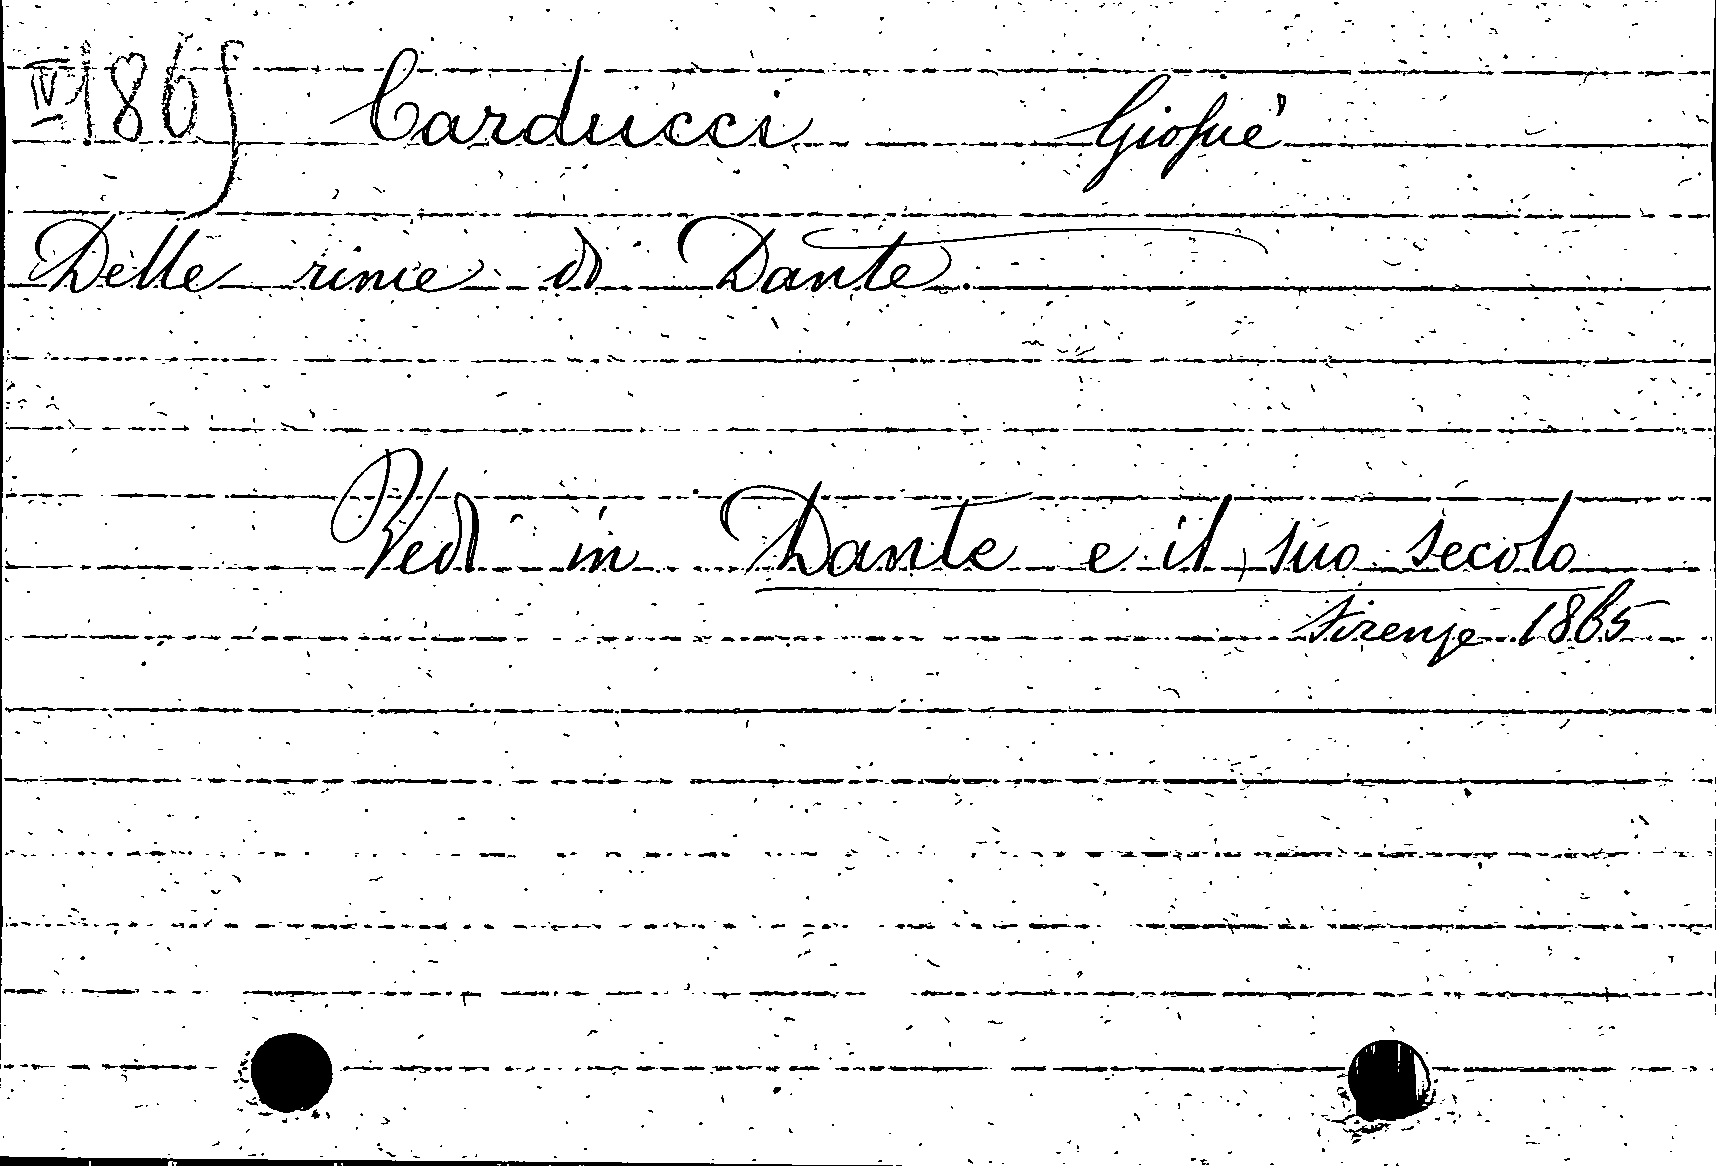 IV 1865 Carducci Giosuè
Delle rime di Dante.
Vedi in Dante e il suo secolo
Firenze 1865